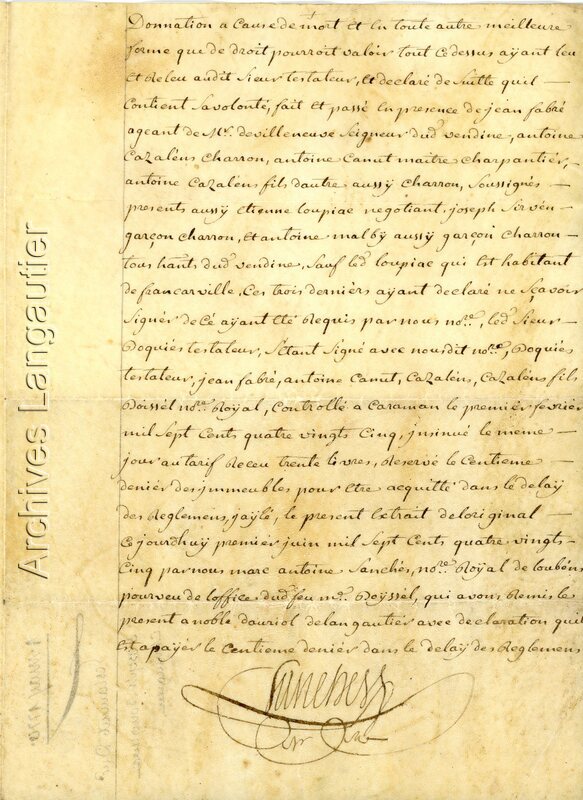 Donnation a cause de mort et en toute autre meilleure
forme que de droit pourroit valoir tout cedessus ayant leu
et releu audit sieur testateur, et declaré de suitte quil
contient savolonté, fait et passé en presence de jean fabré
ageant de Mr. devilleneuve seigneur dud. vendine, antoine
Cazaléns charron, antoine Canut maitre charpantiér,
antoine Cazaléns fils dautre aussy charron, soussignés
presents aussy etienne loupiac negotiant, joseph sirvén
garçon charron, et antoine malby aussy garçon charron
tous hants dud. vendine, sauf led. loupiac qui est habitant
de francarville, ces trois derniérs ayant declaré ne sçavoir
signér de cé ayant eté requis par nous nore., led. sieur
Doquiés testateur, sétant signé avec nousdit nore., Doquiés
testateur, jean fabré, antoine Canut, Cazaléns, Cazaléns fils
Doissél nore. Royal, Controllé a Caraman le premier fevriér
mil sept cents quatre vingts cinq, insinué le meme
jour au tarif receu trente livres, reservé le Centieme
deniér des jmmeubles pour etre acquitté dans le délay
des reglemens, jaylé, le present extrait deloriginal
cejourdhuy premier juin mil sept cents quatre vingts
cinq par nous marc antoine Sanchés, nore. Royal de loubéns
pourveu de loffice dud. feu me. Doyssél, qui avons remis le
present a noble dauriol delangautiér avec declaration quil
est apayer le Centieme deniér dans le delay des reglemens
Sanchess
Archives Langautier